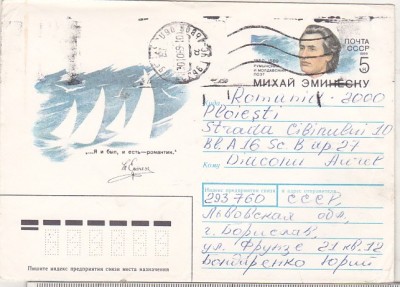 ПОЧТА
СССР
1989
5
К
1850-1889
РУМЫНСКИЙ
И МОЛДАВСКИЙ
ПОЭТ
МИХАЙ ЭМИНЕСКУ
...Я и был, и есть—романтик.
Куда
Romania - 2000
Ploiești
Strada Cibinului 10
Bl. A 16 Sc B ap 27
Кому Diaconu Aurel
Индекс предприятия связи и адрес отправителя
293760 СССР,
Львовская обл,
г. Борислав,
ул. Фрунзе 21 кв. 12
Бондаренко Юрий
Пишите индекс предприятия связи места назначения